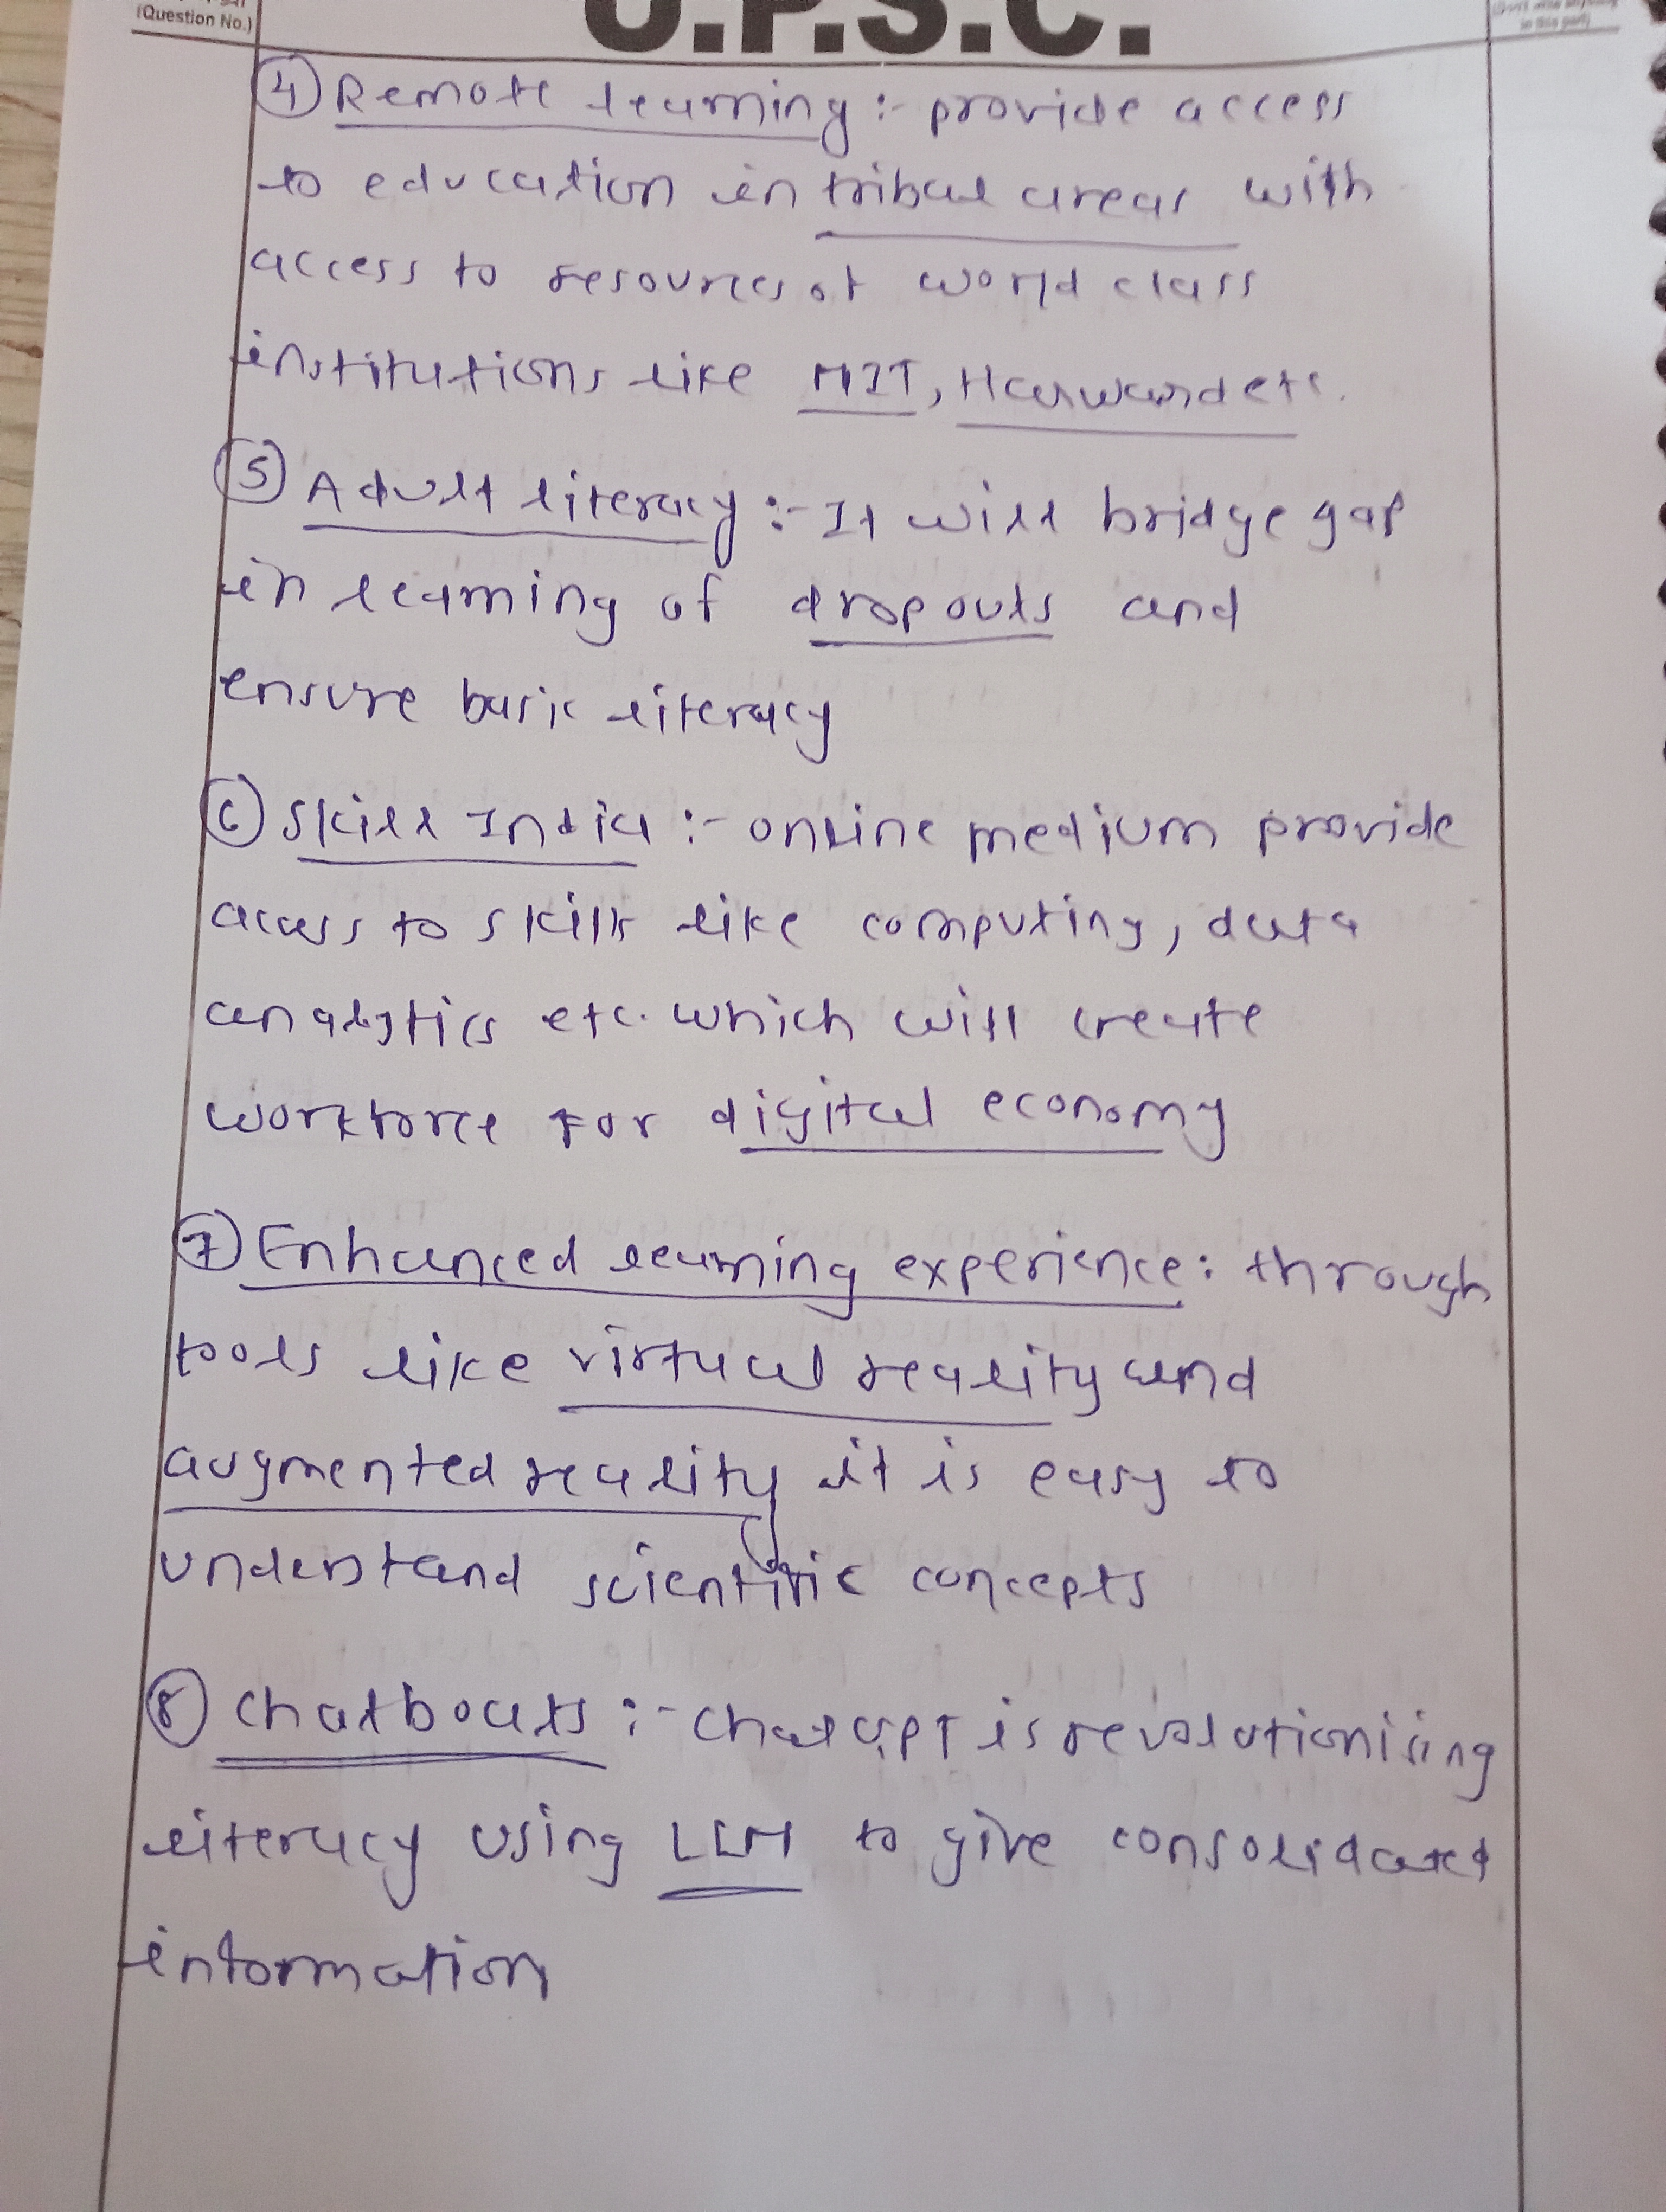 (Question No.)
U.P.S.C.
in this part)
④ Remote learning :- provide access
to education in tribal areas with
access to resources of world class
institutions like MIT, Harward etc.
⑤ Adult literacy :- It will bridge gap
in learning of dropouts and
ensure basic literacy
⑥ Skill India :- online medium provide
access to skills like computing, data
analytics etc. which will create
workforce for digital economy
⑦ Enhanced learning experience : through
tools like virtual reality and
augmented reality it is easy to
understand scientific concepts
⑧ Chatboats :- ChatGPT is revolutionising
literacy using LLM to give consolidated
information